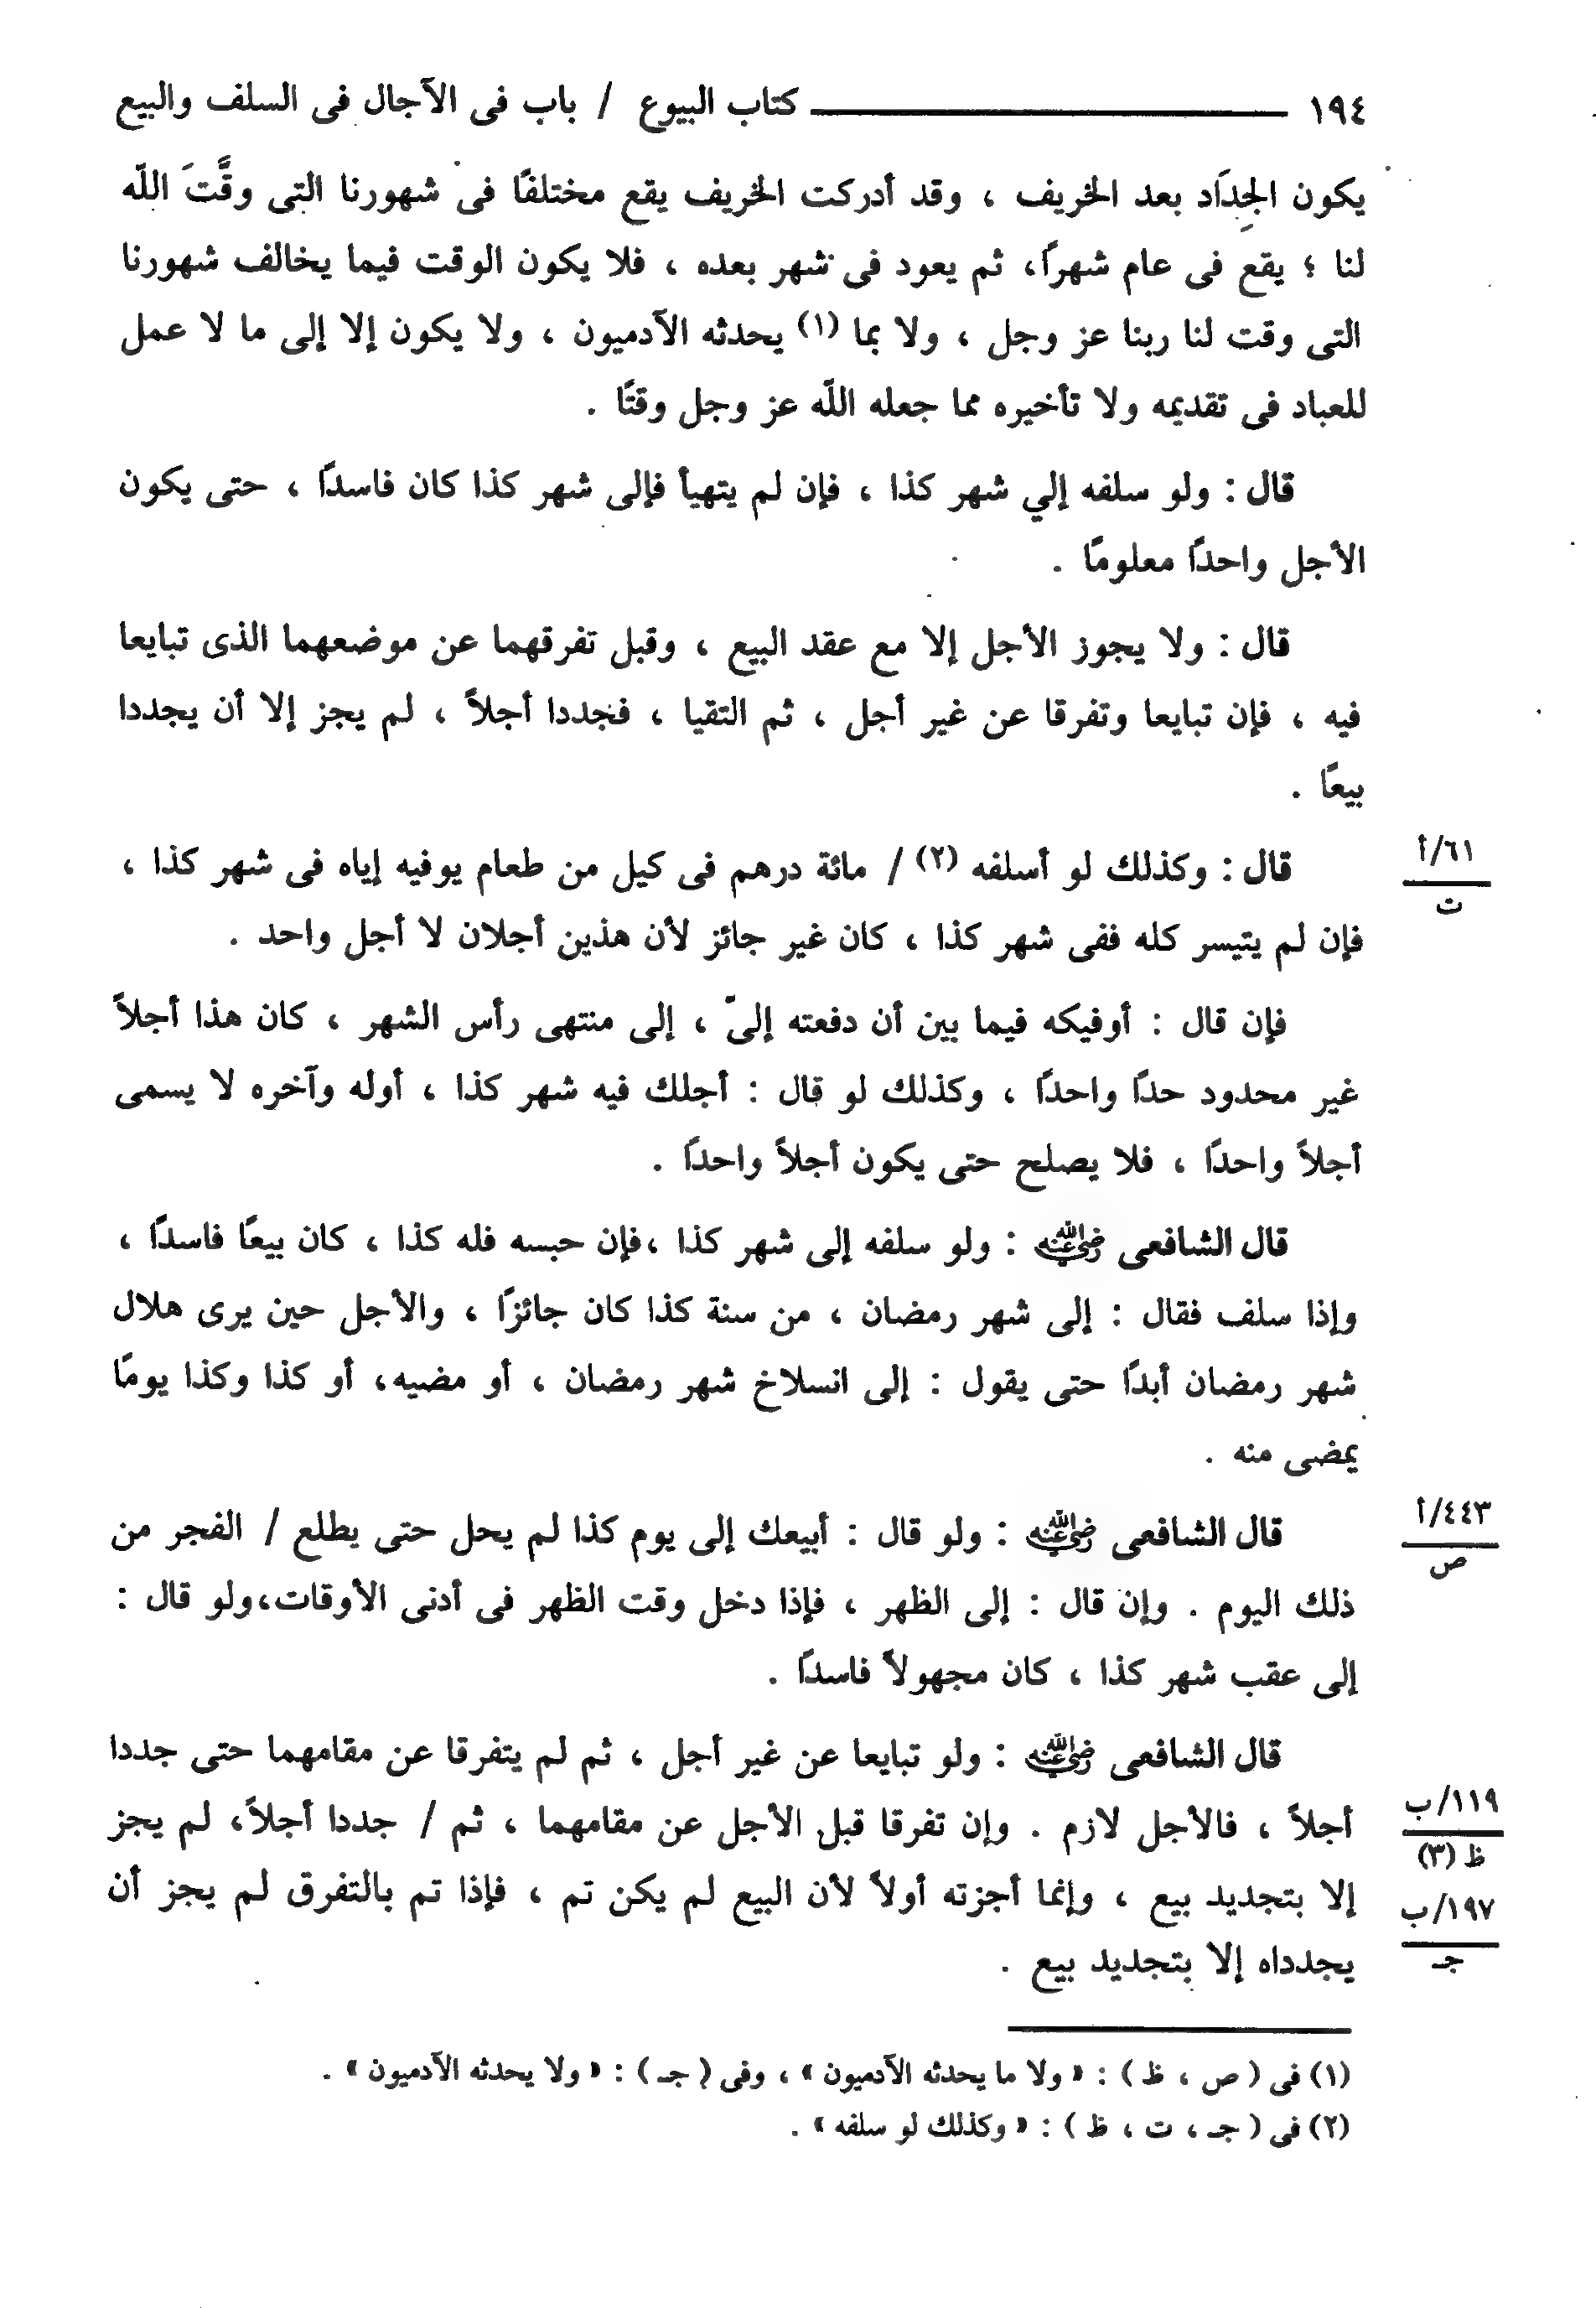 ١٩٤ كتاب البيوع / باب فى الآجال فى السلف والبيع
يكون الجِدَاد بعد الخريف ، وقد أدركت الخريف يقع مختلفًا فى شهورنا التى وقَّتَ اللّه
لنا ؛ يقع فى عام شهرًا، ثم يعود فى شهر بعده ، فلا يكون الوقت فيما يخالف شهورنا
التى وقت لنا ربنا عز وجل ، ولا بما (١) يحدثه الآدميون ، ولا يكون إلا إلى ما لا عمل
للعباد فى تقديمه ولا تأخيره مما جعله اللّه عز وجل وقتًا .
قال : ولو سلفه إلي شهر كذا ، فإن لم يتهيأ فإلى شهر كذا كان فاسدًا ، حتى يكون
الأجل واحدًا معلومًا .
قال : ولا يجوز الأجل إلا مع عقد البيع ، وقبل تفرقهما عن موضعهما الذى تبايعا
فيه ، فإن تبايعا وتفرقا عن غير أجل ، ثم التقيا ، فجددا أجلاً ، لم يجز إلا أن يجددا
بيعًا .
٦١/أ
ت
قال : وكذلك لو أسلفه (٢) / مائة درهم فى كيل من طعام يوفيه إياه فى شهر كذا ،
فإن لم يتيسر كله ففى شهر كذا ، كان غير جائز لأن هذين أجلان لا أجل واحد .
فإن قال : أوفيكه فيما بين أن دفعته إلىّ ، إلى منتهى رأس الشهر ، كان هذا أجلاً
غير محدود حدًا واحدًا ، وكذلك لو قال : أجلك فيه شهر كذا ، أوله وآخره لا يسمى
أجلاً واحدًا ، فلا يصلح حتى يكون أجلاً واحدًا .
قال الشافعى رضي الله عنه : ولو سلفه إلى شهر كذا ،فإن حبسه فله كذا ، كان بيعًا فاسدًا ،
وإذا سلف فقال : إلى شهر رمضان ، من سنة كذا كان جائزًا ، والأجل حين يرى هلال
شهر رمضان أبدًا حتى يقول : إلى انسلاخ شهر رمضان ، أو مضيه، أو كذا وكذا يومًا
يمضى منه .
٤٤٣/أ
ص
قال الشافعى رضي الله عنه : ولو قال : أبيعك إلى يوم كذا لم يحل حتى يطلع / الفجر من
ذلك اليوم . وإن قال : إلى الظهر ، فإذا دخل وقت الظهر فى أدنى الأوقات،ولو قال :
إلى عقب شهر كذا ، كان مجهولاً فاسدًا .
قال الشافعى رضي الله عنه : ولو تبايعا عن غير أجل ، ثم لم يتفرقا عن مقامهما حتى جددا
١١٩/ب
ظ (٣)
أجلاً ، فالأجل لازم . وإن تفرقا قبل الأجل عن مقامهما ، ثم / جددا أجلاً، لم يجز
١٩٧/ب
جـ
إلا بتجديد بيع ، وإنما أجزته أولاً لأن البيع لم يكن تم ، فإذا تم بالتفرق لم يجز أن
يجدداه إلا بتجديد بيع .
(١) فى ( ص ، ظ ) : « ولا ما يحدثه الآدميون » ، وفى ( جـ ) : « ولا يحدثه الآدميون » .
(٢) فى ( جـ ، ت ، ظ ) : « وكذلك لو سلفه » .